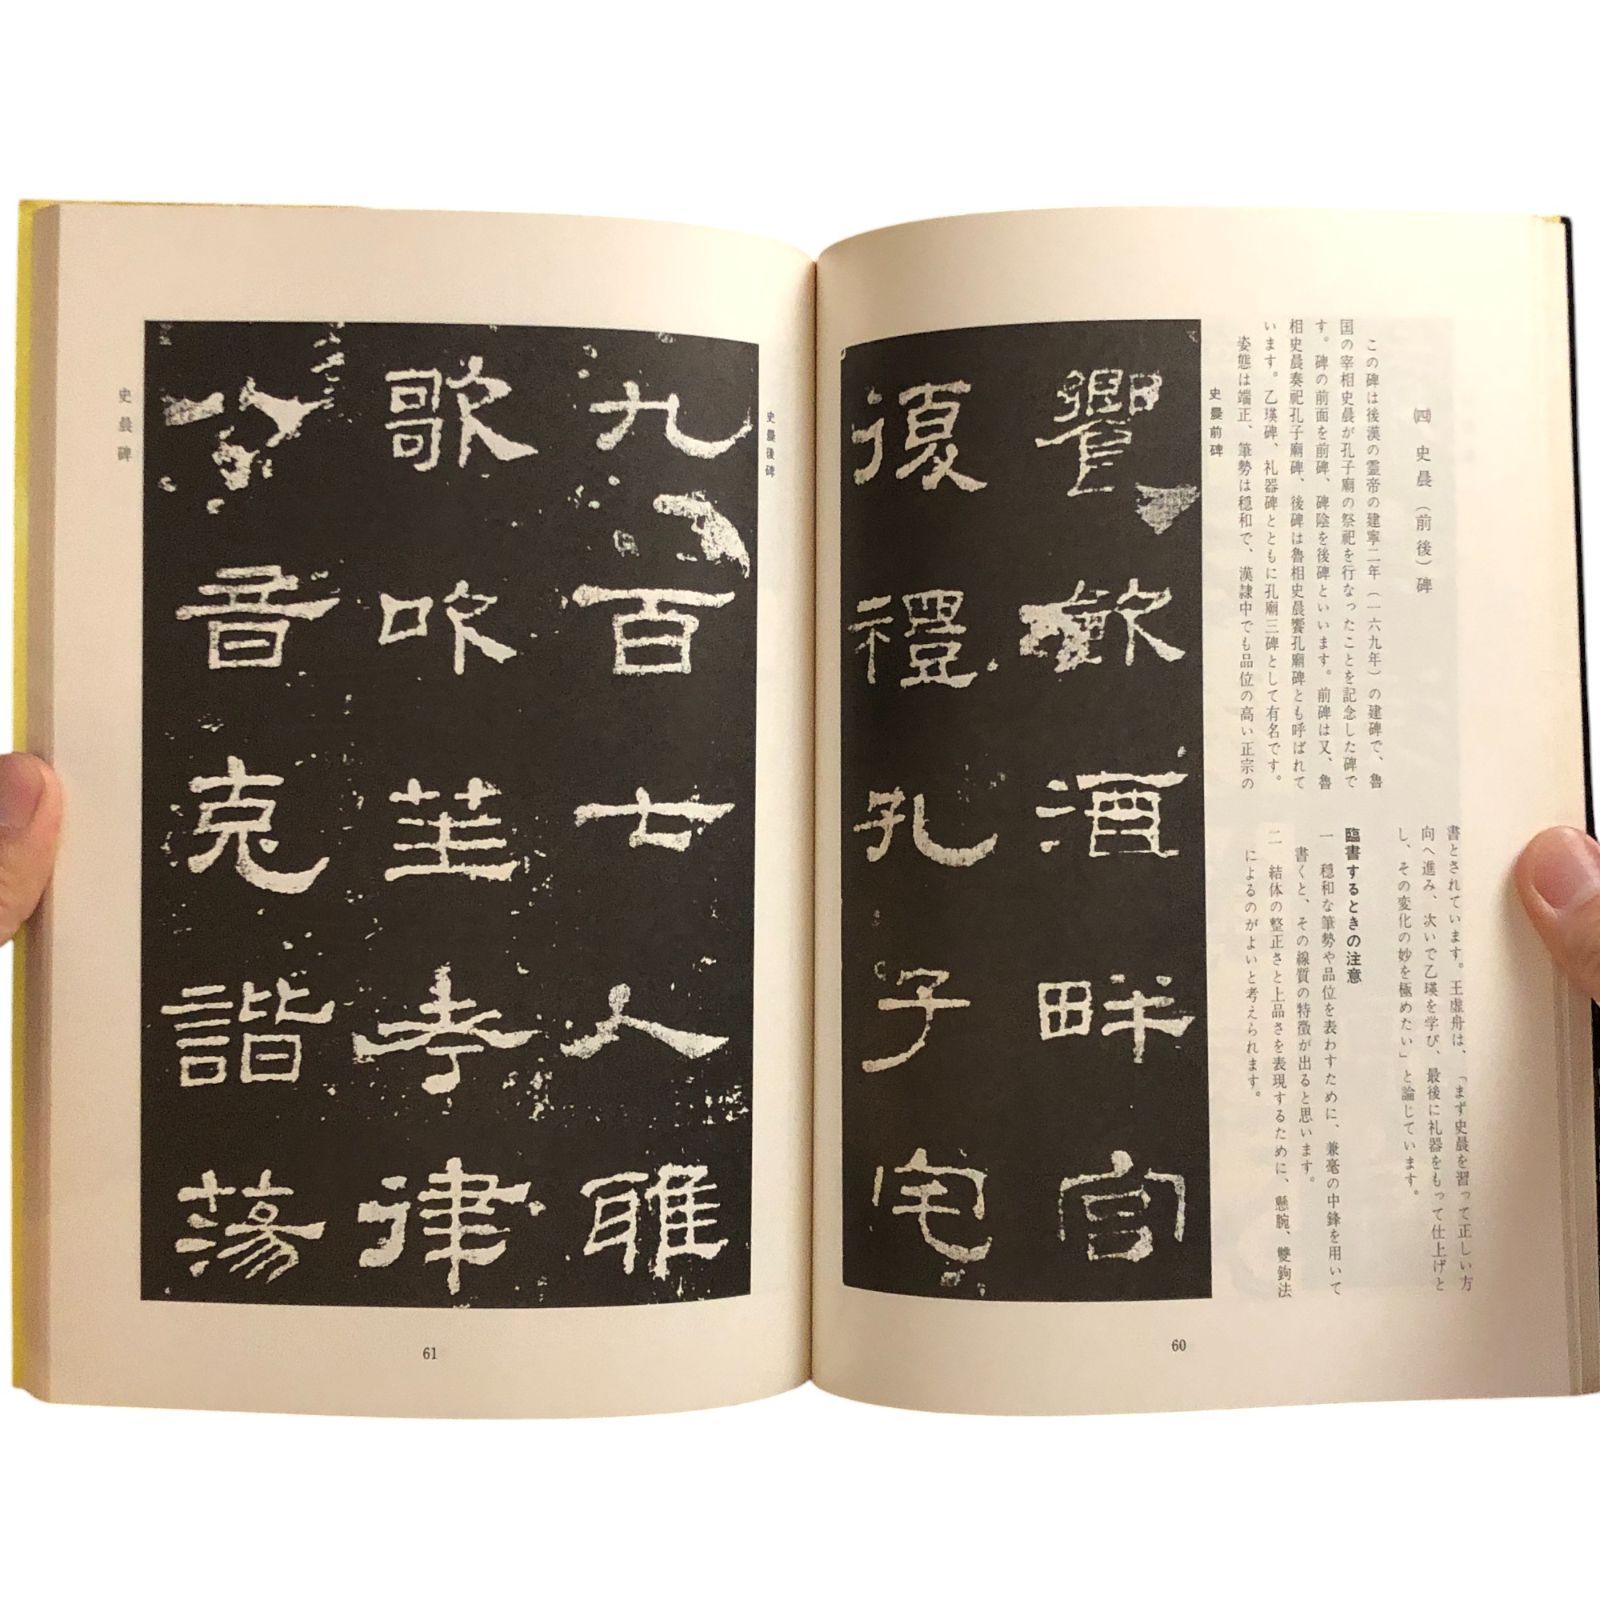 ㈣ 史晨（前後）碑
この碑は後漢の霊帝の建寧二年（一六九年）の建碑で、魯
国の宰相史晨が孔子廟の祭祀を行なったことを記念した碑で
す。碑の前面を前碑、碑陰を後碑といいます。前碑は又、魯
相史晨奏祀孔子廟碑、後碑は魯相史晨饗孔廟碑とも呼ばれて
います。乙瑛碑、礼器碑とともに孔廟三碑として有名です。
姿態は端正、筆勢は穏和で、漢隷中でも品位の高い正宗の
書とされています。王虚舟は、「まず史晨を習って正しい方
向へ進み、次いで乙瑛を学び、最後に礼器をもって仕上げと
し、その変化の妙を極めたい」と論じています。
臨書するときの注意
一 穏和な筆勢や品位を表わすために、兼毫の中鋒を用いて
書くと、その線質の特徴が出ると思います。
二 結体の整正さと上品さを表現するために、懸腕、雙鉤法
によるのがよいと考えられます。
史晨前碑
饗飲酒畔宮
復禮孔子宅
60
史晨後碑
九百七人雅
歌吹笙考律
八音克諧蕩
史晨碑
61